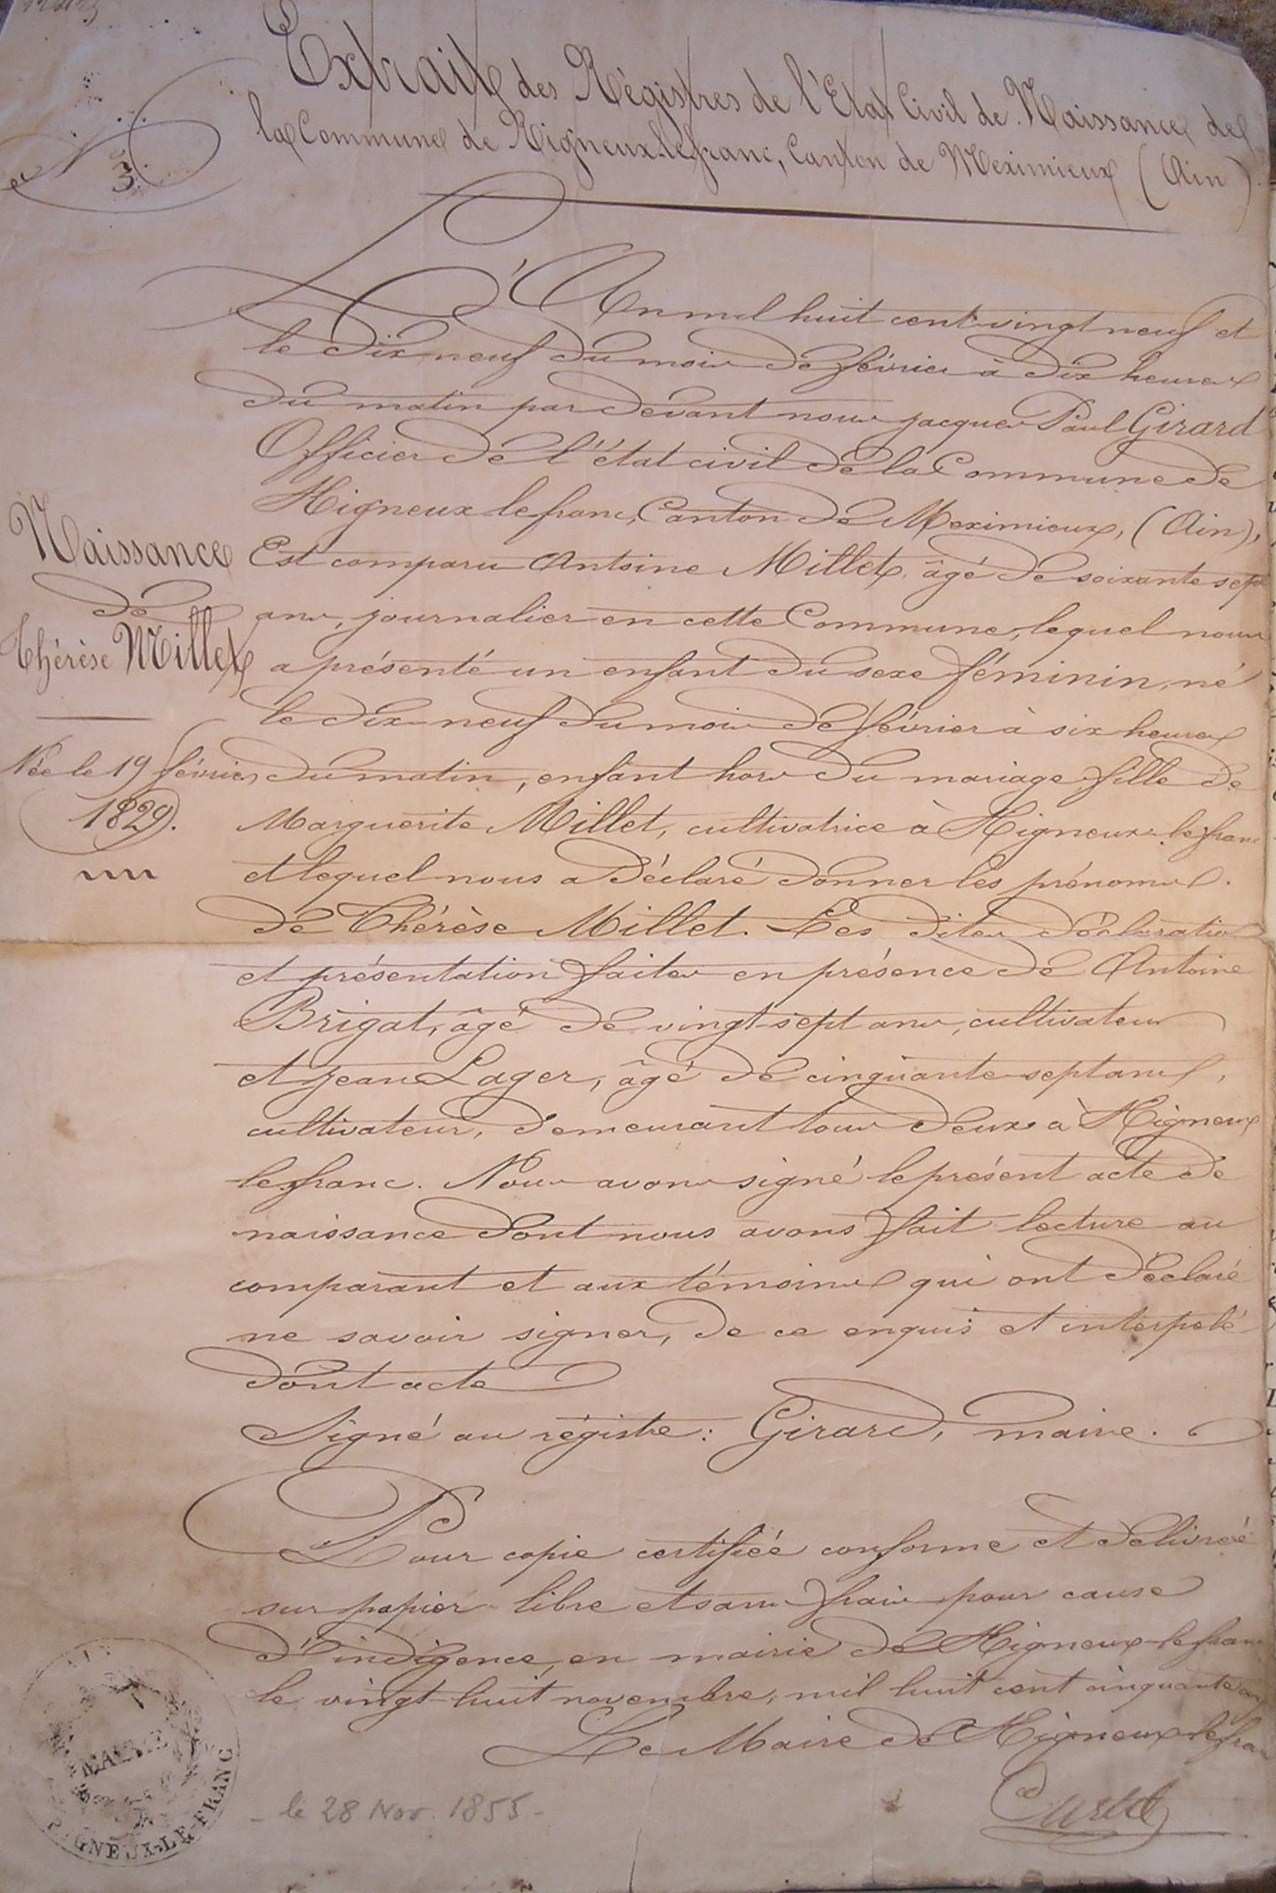 3
Extrait des Régistres de l'Etat Civil de Naissance de
la Commune de Rigneux-le-franc, Canton de Meximieux (Ain).
L'An mil huit cent vingt neuf et
le dix neuf du mois de février à dix heures
du matin par devant nous jacques Paul Girard
Officier de l'état civil de la Commune de
Rigneux le franc, Canton de Meximieux, (Ain),
Est comparu Antoine Millet, âgé de soixante sept
ans, journalier en cette Commune, lequel nous
a présenté un enfant du sexe féminin, né
le dix neuf du mois de février à six heures
du matin, enfant hors du mariage fille de
Marguerite Millet, cultivatrice à Rigneux-le franc
et lequel nous a déclaré donner les prénoms
de Thérèse Millet. Les dites déclaration
et présentation faites en présence de Antoine
Brigat, âgé de vingt-sept ans, cultivateur
et jean Lager, âgé de cinquante-sept ans,
cultivateur, demeurant tous deux à Rigneux
le franc. Nous avons signé le présent acte de
naissance dont nous avons fait lecture au
comparant et aux témoins qui ont déclaré
ne savoir signer, de ce enquis et interpelé
dont acte
Signé au régistre: Girard, maire.
Naissance
de
Thérèse Millet
Née le 19 février
1829.
Pour copie certifiée conforme et délivrée
sur papier libre et sans frais pour cause
d'indigence, en mairie de Rigneux-le franc
le vingt-huit novembre, mil huit cent cinquante
Le Maire de Rigneux-le-franc
le 28 Nov. 1855
AIN
MAIRIE
RIGNEUX-LE-FRANC